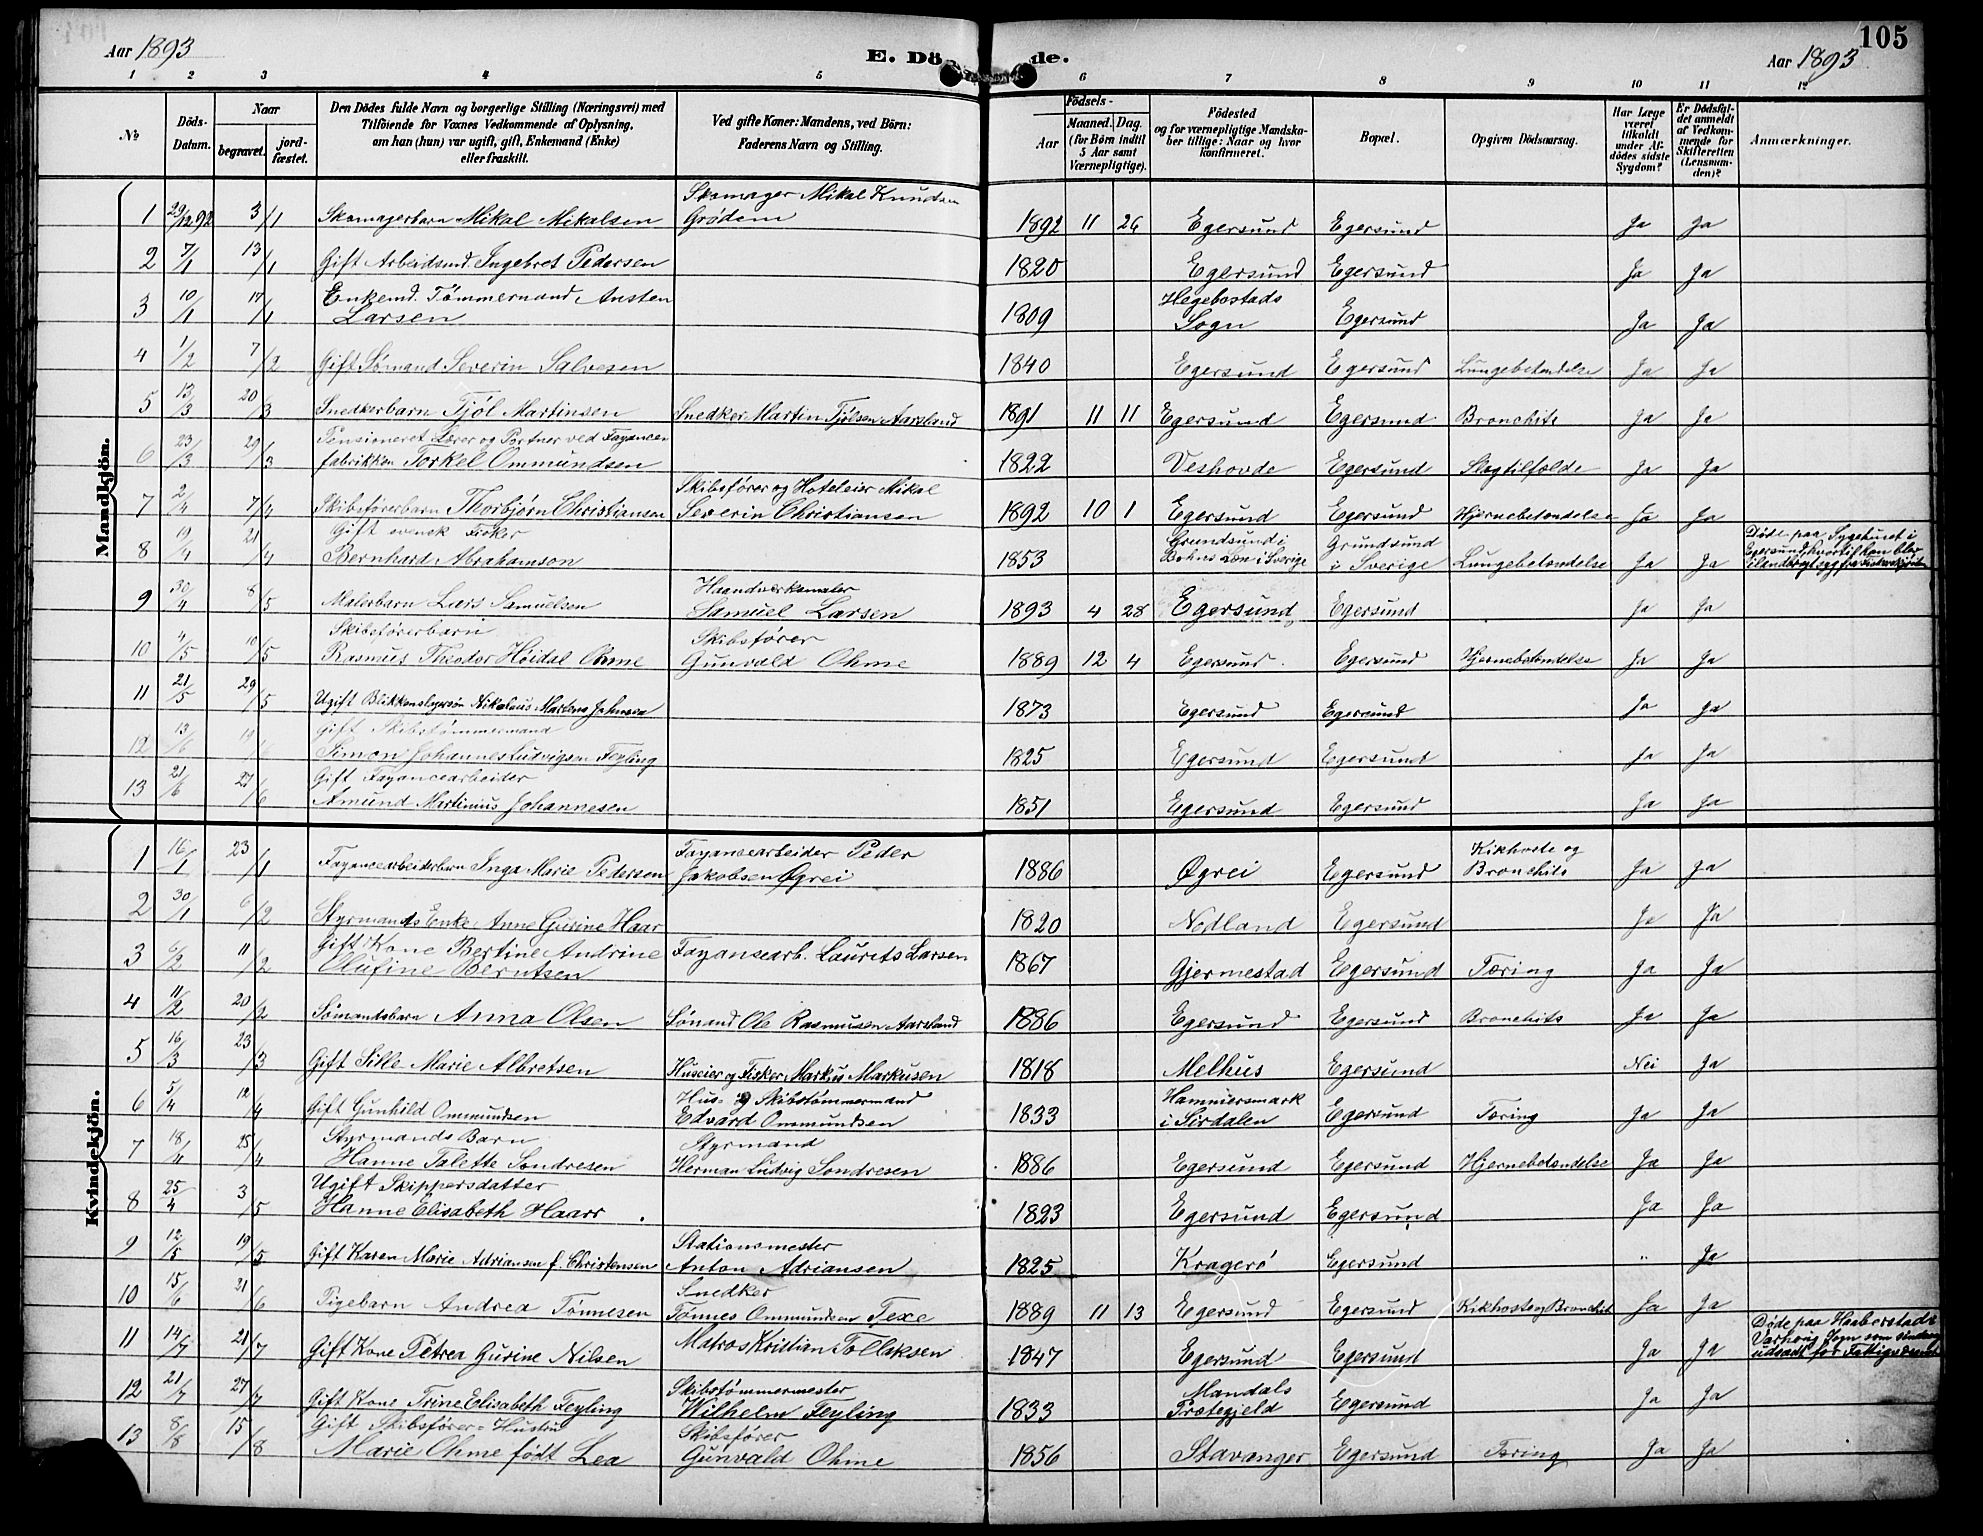 105
Aar 1893 E. Dö de. Aar 1893
1 2 3 4 5 6 7 8 9 10 11 12
No Döds-Datum. Naar begravet. jordfæstet. Den Dödes fulde Navn og borgerlige Stilling (Næringsvei) med Tilföiende for Voxnes Vedkommende af Oplysning, om han (hun) var ugift, gift, Enkemand (Enke) eller fraskilt. Ved gifte Koner: Mandens, ved Börn: Faderens Navn og Stilling. Födsels- Aar Maaned. Dag. (for Børn indtil 5 Aar samt Værnepligtige). Födested og for værnepligtige Mandskaber tillige: Naar og hvor konfirmeret. Bopæl. Opgiven Dödsaarsag. Har Læge været tilkaldt under Afdödes sidste Sygdom? Er Dödsfaldet anmeldt af Vedkommende for Skifteretten (Lensmanden)? Anmærkninger.
Mandkjön.
1 29/12 92 3/1 Skomagerbarn Mikal Mikalsen Skomager Mikal Knudsen Grødem 1892 11 26 Egersund Egersund Ja Ja
2 7/1 13/1 Gift Arbeidsmd. Ingebret Pedersen 1820 Egersund Egersund Ja Ja
3 10/1 17/1 Enkemd. Tømmermand Austen Larsen 1809 Hegebostads Sogn Egersund Ja Ja
4 1/2 7/2 Gift Sømand Severin Salvesen 1840 Egersund Egersund Lungebetændelse Ja Ja
5 13/3 20/3 Snedkerbarn Tjøl Martinsen Snedker Martin Tjølsen Aarsland 1891 11 11 Egersund Egersund Bronchits Ja Ja
6 23/3 29/3 Pensioneret Lærer og Portner ved Fayance fabrikken Torkel Ommundsen 1822 Veshovde Egersund Slagtilfælde Ja Ja
7 2/4 7/4 Skibsførerbarn Thorbjørn Christiansen Skibsfører og Hoteleier Mikal Severin Christiansen 1892 10 1 Egersund Egersund Hjernebetændelse Ja Ja
8 19/4 21/4 Gift svensk Fisker Bernhard Abrahamson 1853 Grundsund i Bohus Len i Sverige Grundsund i Sverige Lungebetændelse Ja Ja Døde paa Sygehuset i Egersund, hvortil han blev ilandbragt syg fra
9 30/4 8/5 Malerbarn Lars Samuelsen Haandværksmaler Samuel Larsen 1893 4 28 Egersund Egersund Ja Ja
10 4/5 10/5 Skibsførerbarn Rasmus Theodor Høidal Ohme Skibsfører Gunvald Ohme 1889 12 4 Egersund Egersund Hjernebetændelse Ja Ja
11 21/5 29/5 Ugift Blikkenslagersøn Nikolaus Martens Johnsen 1873 Egersund Egersund Ja Ja
12 13/6 19/6 Gift Skibstømmermand Simon Johannes Ludvigsen Feyling 1825 Egersund Egersund Ja Ja
13 21/6 27/6 Gift Fayancearbeider Amund Martinius Johannesen 1851 Egersund Egersund Ja Ja
Kvindekjön.
1 16/1 23/1 Fayancearbeiderbarn Inga Marie Pedersen Fayancearbeider Peder Jakobsen Øgrei 1886 Øgrei Egersund Kikhoste og Bronchits Ja Ja
2 30/1 6/2 Styrmands Enke Anne Gurine Haar 1820 Nodland Egersund Ja Ja
3 6/2 11/2 Gift Kone Bertine Andrine Olufine Berntsen Fayancearb. Laurits Larsen 1867 Gjermestad Egersund Tæring Ja Ja
4 11/2 20/2 Sømandsbarn Anna Olsen Sømand Ole Rasmusen Aarsland 1886 Egersund Egersund Bronchits Ja Ja
5 16/3 23/3 Gift Sille Marie Albretsen Huseier og Fisker Markus Markusen 1818 Melhus Egersund Nei Ja
6 5/4 12/4 Gift Gunhild Ommundsen Hus- og Skibstømmermand Edvard Ommundsen 1833 Hammersmark i Sirdalen Egersund Tæring Ja Ja
7 18/4 25/4 Styrmands Barn Hanne Talette Sondresen Styrmand Herman Ludvig Sondresen 1886 Egersund Egersund Hjernebetændelse Ja Ja
8 25/4 3/5 Ugift Skippersdatter Hanne Elisabeth Haarr 1823 Egersund Egersund Ja Ja
9 12/5 19/5 Gift Karen Marie Adriansen f. Christensen Stationsmester Anton Adriansen 1825 Kragerö Egersund " Ja
10 15/6 21/6 Pigebarn Andrea Tønnesen Snedker Tønnes Ommundsen Texe 1889 11 13 Egersund Egersund Kikhoste og Bronchit Ja Ja
11 14/7 21/7 Gift Kone Petrea Gurine Nilsen Matros Kristian Tollaksen 1847 Egersund Egersund Ja Ja Døde paa Haaberstad Varhoug Sogn som sindssyg udsadt for Fattigvæsenet
12 21/7 27/7 Gift Kone Trine Elisabeth Feyling Skibstømmermester Wilhelm Feyling 1833 Mandals Præstegjeld Egersund Ja Ja
13 8/8 15/8 Gift Skibsfører-Hustru Marie Ohme født Lea Skibsfører Gunvald Ohme 1856 Stavanger Egersund Tæring Ja Ja